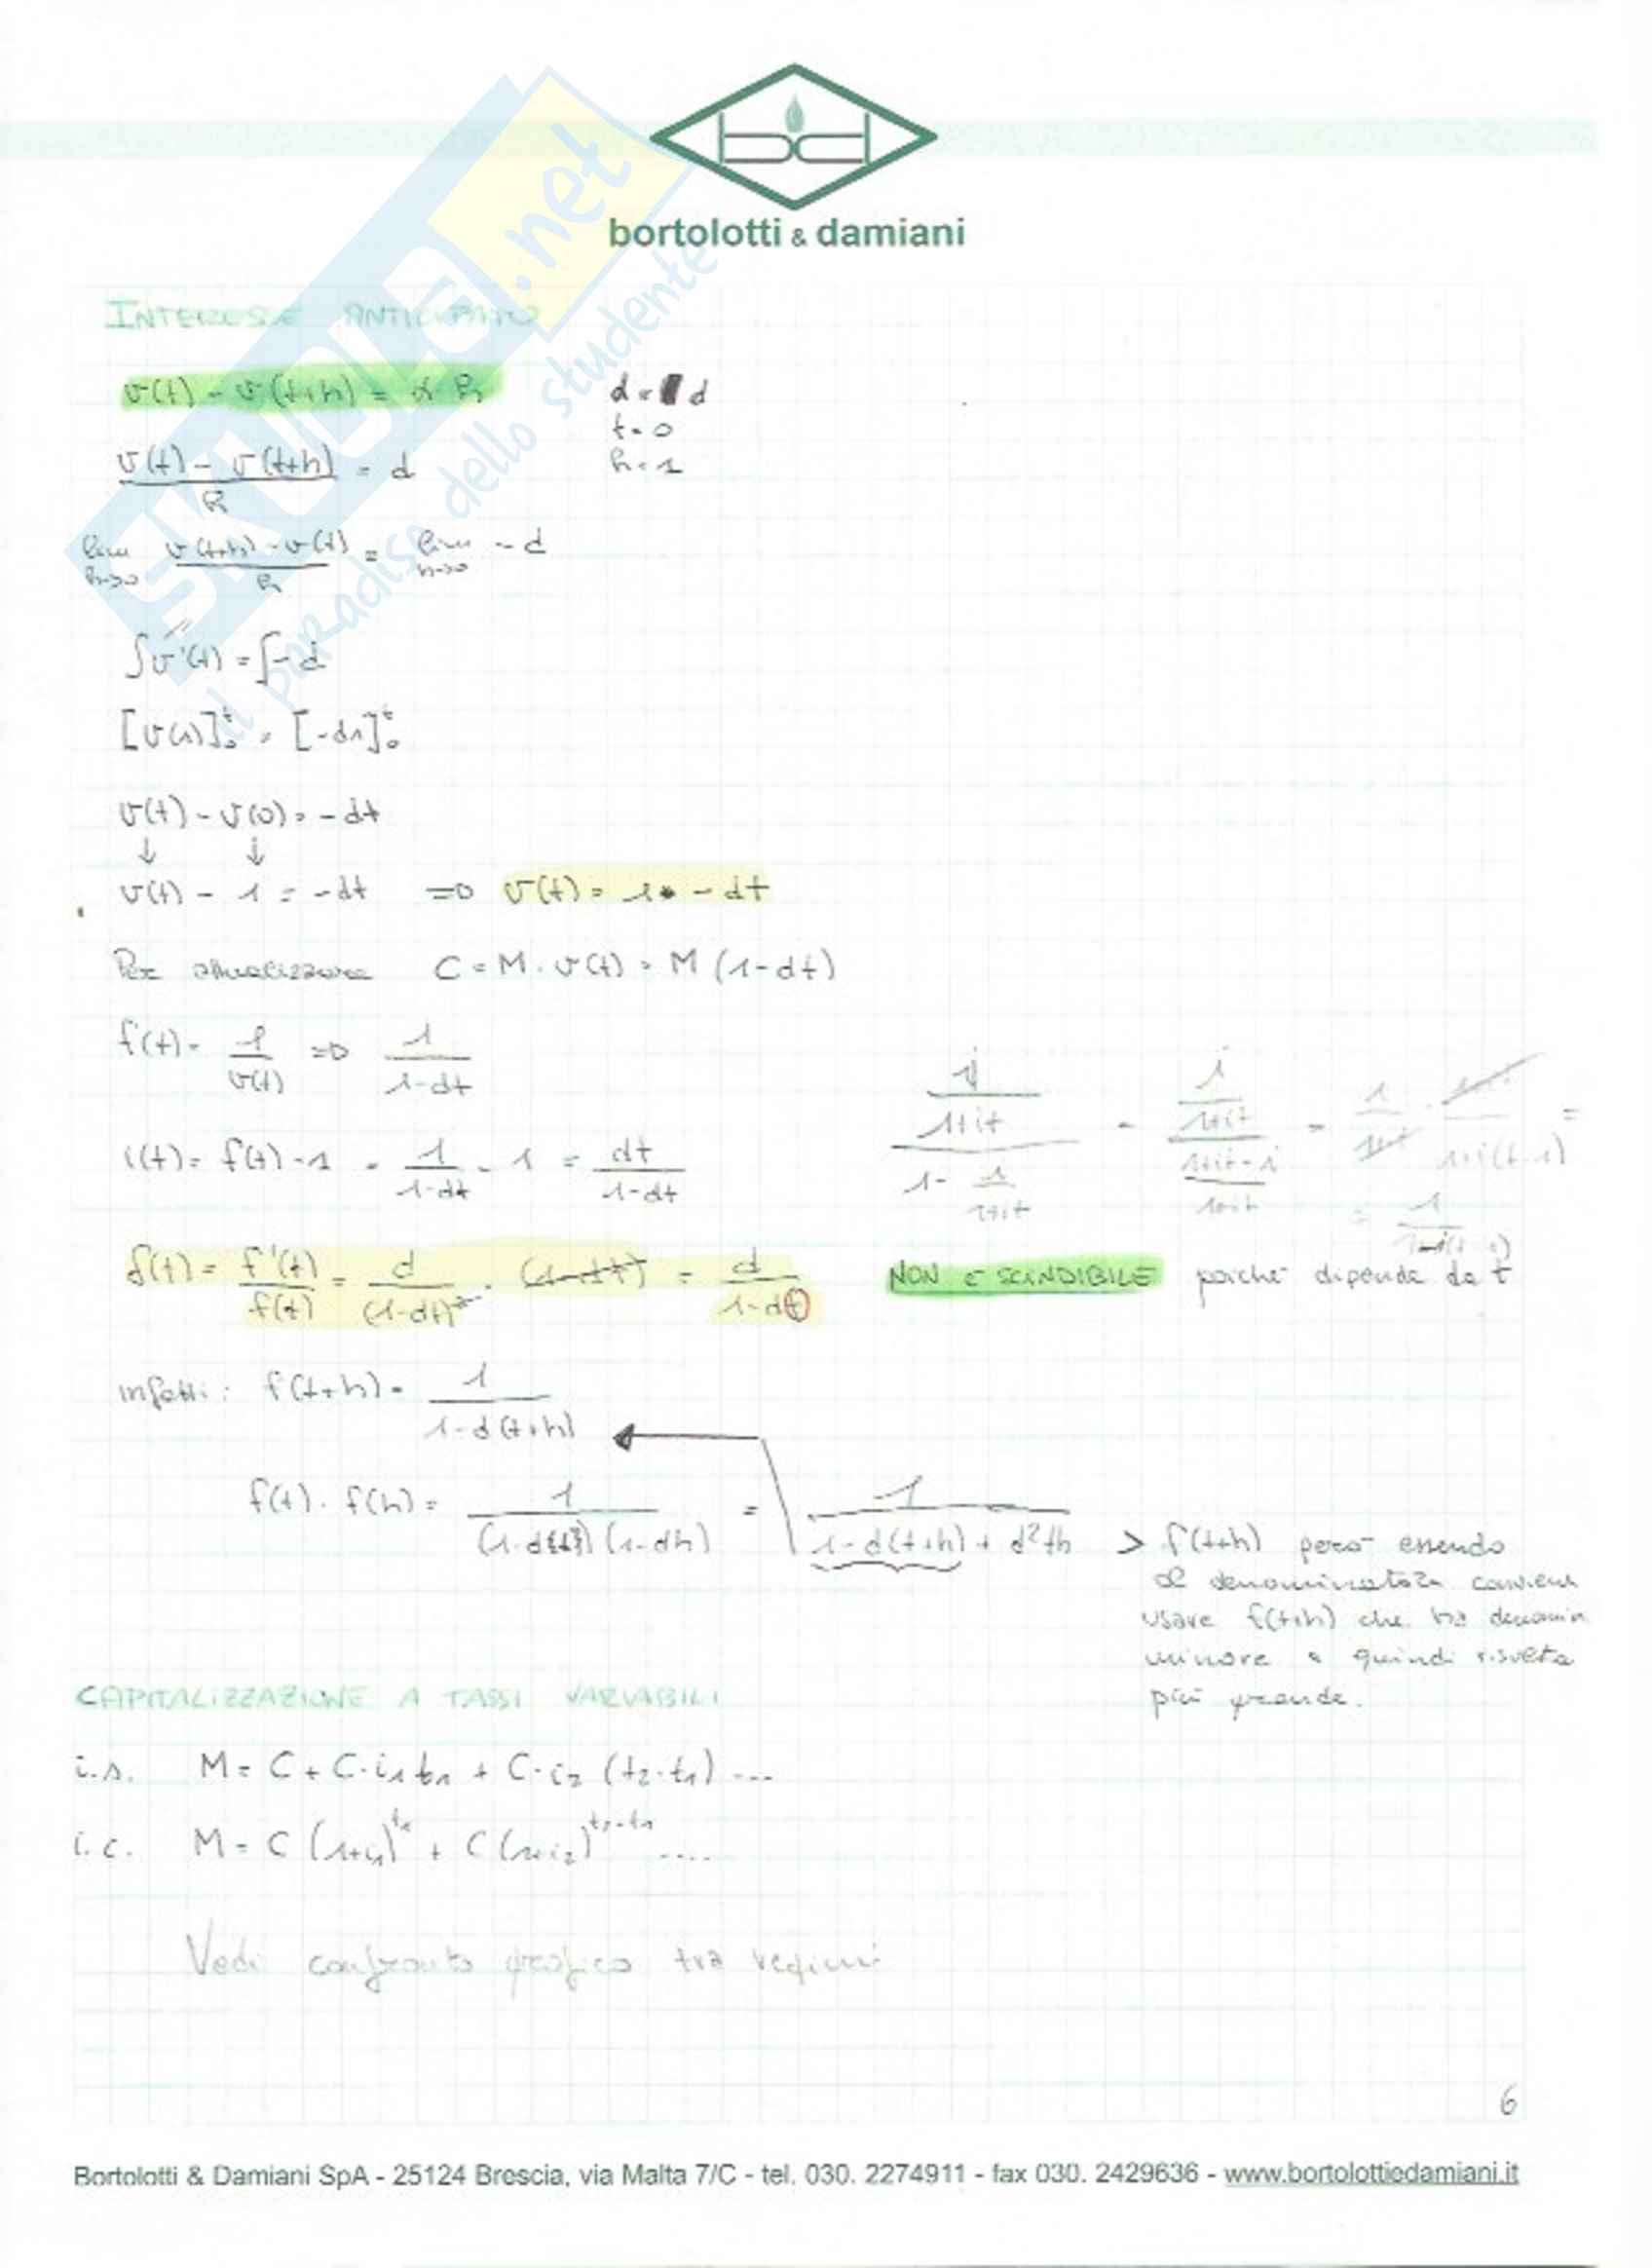 bortolotti & damiani
SKUOLA.net
il paradiso dello studente
INTERESSE ANTICIPATO
v(t) - v(t+h) = α·h
d = d
t = 0
h = 1
v(t) - v(t+h) / h = d
lim h->0 v(t+h) - v(t) / h = lim h->0 - d
∫v'(t) = ∫-d
[v(s)]₀ᵗ = [-ds]₀ᵗ
v(t) - v(0) = - dt
↓ ↓
v(t) - 1 = - dt => v(t) = 1 - dt
Per attualizzare C = M · v(t) = M (1-dt)
f(t) = 1 / v(t) => 1 / 1-dt
i(t) = f(t) - 1 = 1 / 1-dt - 1 = dt / 1-dt
i / 1+it / 1 - 1 / 1+it = i / 1+it / 1+it-1 / 1+it
δ(t) = f'(t) / f(t) = d / (1-dt)² · (1-dt) = d / 1-dt
NON È SCINDIBILE poiché dipende da t
infatti: f(t+h) = 1 / 1-d(t+h)
f(t) · f(h) = 1 / (1-dt) (1-dh) = 1 / 1-d(t+h) + d²th > f(t+h) però essendo
al denominatore conviene
usare f(t+h) che ha denomin
minore e quindi risulta
più grande.
CAPITALIZZAZIONE A TASSI VARIABILI
i.s. M = C + C·i₁t₁ + C·i₂ (t₂-t₁) ...
i.c. M = C (1+i₁)^t₁ + C (1+i₂)^t₂-t₁ ....
Vedi confronto grafico tra regimi
6
Bortolotti & Damiani SpA - 25124 Brescia, via Malta 7/C - tel. 030. 2274911 - fax 030. 2429636 - www.bortolottiedamiani.it